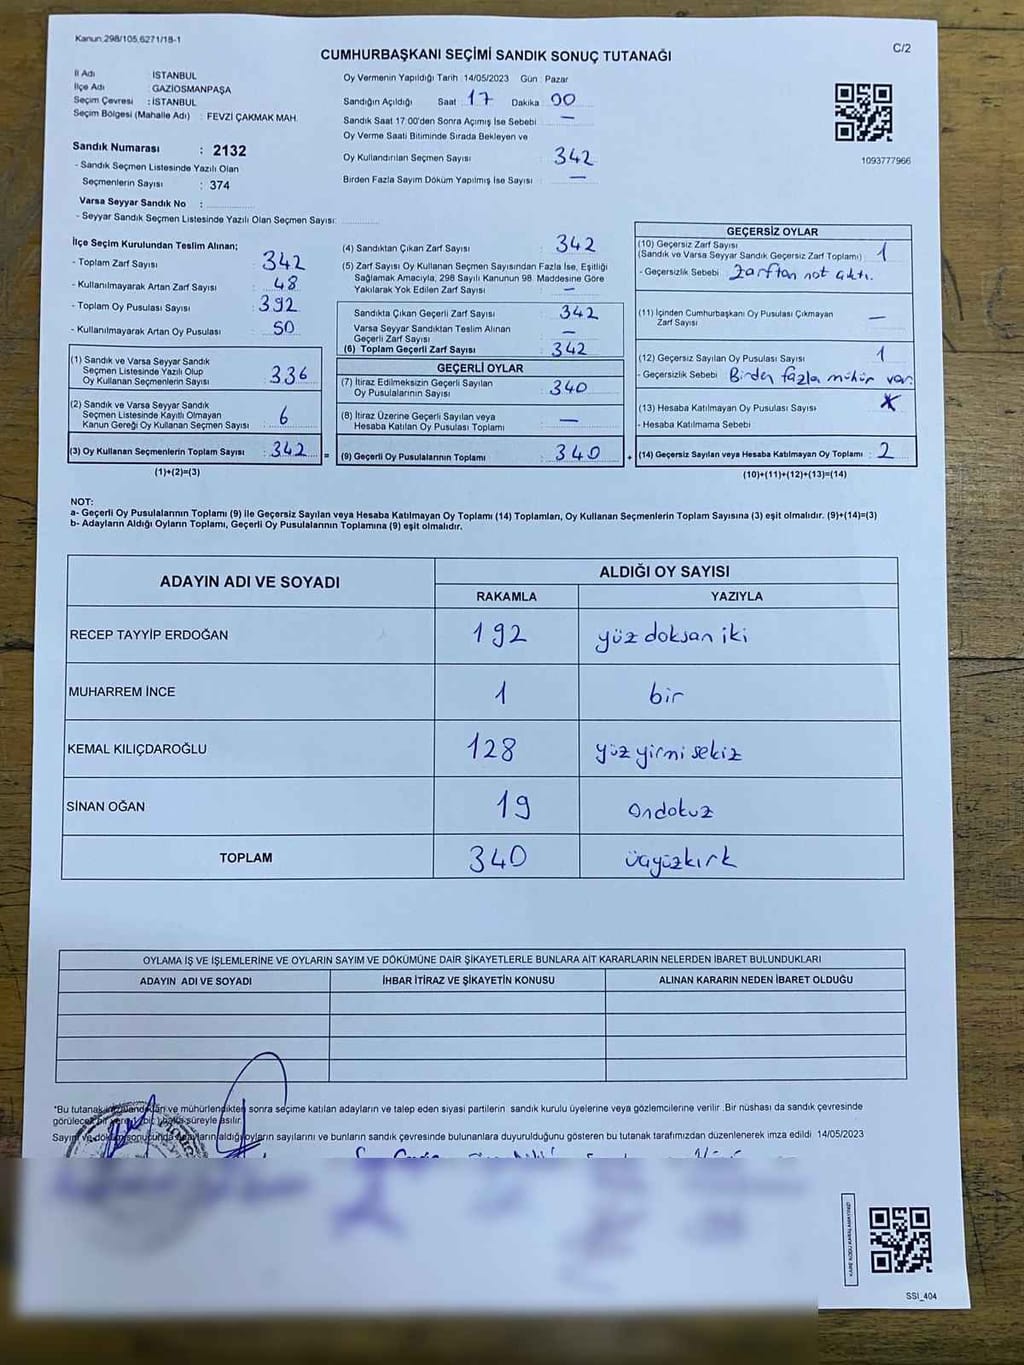 Kanun:298/105,6271/18-1
C/2
CUMHURBAŞKANI SEÇİMİ SANDIK SONUÇ TUTANAĞI
İl Adı : İSTANBUL
İlçe Adı : GAZİOSMANPAŞA
Seçim Çevresi : İSTANBUL
Seçim Bölgesi (Mahalle Adı) : FEVZİ ÇAKMAK MAH.
Sandık Numarası : 2132
- Sandık Seçmen Listesinde Yazılı Olan
Seçmenlerin Sayısı : 374
Varsa Seyyar Sandık No :
- Seyyar Sandık Seçmen Listesinde Yazılı Olan Seçmen Sayısı:
Oy Vermenin Yapıldığı Tarih : 14/05/2023 Gün : Pazar
Sandığın Açıldığı Saat 17 Dakika 00
Sandık Saat 17:00'den Sonra Açımış İse Sebebi : —
Oy Verme Saati Bitiminde Sırada Bekleyen ve
Oy Kullandırılan Seçmen Sayısı : 342
Birden Fazla Sayım Döküm Yapılmış İse Sayısı : —
1093777966
İlçe Seçim Kurulundan Teslim Alınan;
- Toplam Zarf Sayısı : 342
- Kullanılmayarak Artan Zarf Sayısı : 48
- Toplam Oy Pusulası Sayısı : 392
- Kullanılmayarak Artan Oy Pusulası : 50
(1) Sandık ve Varsa Seyyar Sandık
Seçmen Listesinde Yazılı Olup
Oy Kullanan Seçmenlerin Sayısı : 336
(2) Sandık ve Varsa Seyyar Sandık
Seçmen Listesinde Kayıtlı Olmayan
Kanun Gereği Oy Kullanan Seçmen Sayısı : 6
(3) Oy Kullanan Seçmenlerin Toplam Sayısı : 342
(1)+(2)=(3)
(4) Sandıktan Çıkan Zarf Sayısı : 342
(5) Zarf Sayısı Oy Kullanan Seçmen Sayısından Fazla İse, Eşitliği
Sağlamak Amacıyla, 298 Sayılı Kanunun 98. Maddesine Göre
Yakılarak Yok Edilen Zarf Sayısı : —
Sandıkta Çıkan Geçerli Zarf Sayısı : 342
Varsa Seyyar Sandıktan Teslim Alınan
Geçerli Zarf Sayısı : —
(6) Toplam Geçerli Zarf Sayısı : 342
GEÇERLİ OYLAR
(7) İtiraz Edilmeksizin Geçerli Sayılan
Oy Pusulalarının Sayısı : 340
(8) İtiraz Üzerine Geçerli Sayılan veya
Hesaba Katılan Oy Pusulası Toplamı : —
(9) Geçerli Oy Pusulalarının Toplamı : 340
GEÇERSİZ OYLAR
(10) Geçersiz Zarf Sayısı
(Sandık ve Varsa Seyyar Sandık Geçersiz Zarf Toplamı) : 1
- Geçersizlik Sebebi : Zarftan not çıktı.
(11) İçinden Cumhurbaşkanı Oy Pusulası Çıkmayan
Zarf Sayısı : —
(12) Geçersiz Sayılan Oy Pusulası Sayısı : 1
- Geçersizlik Sebebi : Birden fazla mühür var.
(13) Hesaba Katılmayan Oy Pusulası Sayısı :
- Hesaba Katılmama Sebebi :
(14) Geçersiz Sayılan veya Hesaba Katılmayan Oy Toplamı : 2
(10)+(11)+(12)+(13)=(14)
NOT:
a- Geçerli Oy Pusulalarının Toplamı (9) ile Geçersiz Sayılan veya Hesaba Katılmayan Oy Toplamı (14) Toplamları, Oy Kullanan Seçmenlerin Toplam Sayısına (3) eşit olmalıdır. (9)+(14)=(3)
b- Adayların Aldığı Oyların Toplamı, Geçerli Oy Pusulalarının Toplamına (9) eşit olmalıdır.
ADAYIN ADI VE SOYADI
ALDIĞI OY SAYISI
RAKAMLA YAZIYLA
RECEP TAYYİP ERDOĞAN 192 yüz doksan iki
MUHARREM İNCE 1 bir
KEMAL KILIÇDAROĞLU 128 yüz yirmi sekiz
SİNAN OĞAN 19 ondokuz
TOPLAM 340 üçyüzkırk
OYLAMA İŞ VE İŞLEMLERİNE VE OYLARIN SAYIM VE DÖKÜMÜNE DAİR ŞİKAYETLERLE BUNLARA AİT KARARLARIN NELERDEN İBARET BULUNDUKLARI
ADAYIN ADI VE SOYADI İHBAR İTİRAZ VE ŞİKAYETİN KONUSU ALINAN KARARIN NEDEN İBARET OLDUĞU
*Bu tutanak ve mühürlendikten sonra seçime katılan adayların ve talep eden siyasi partilerin sandık kurulu üyelerine veya gözlemcilerine verilir .Bir nüshası da sandık çevresinde
görülecek süreyle asılır.
Sayım ve döküm sonucunda adayların aldığı oyların sayılarını ve bunların sandık çevresinde bulunanlara duyurulduğunu gösteren bu tutanak tarafımızdan düzenlenerek imza edildi 14/05/2023
SSİ_404